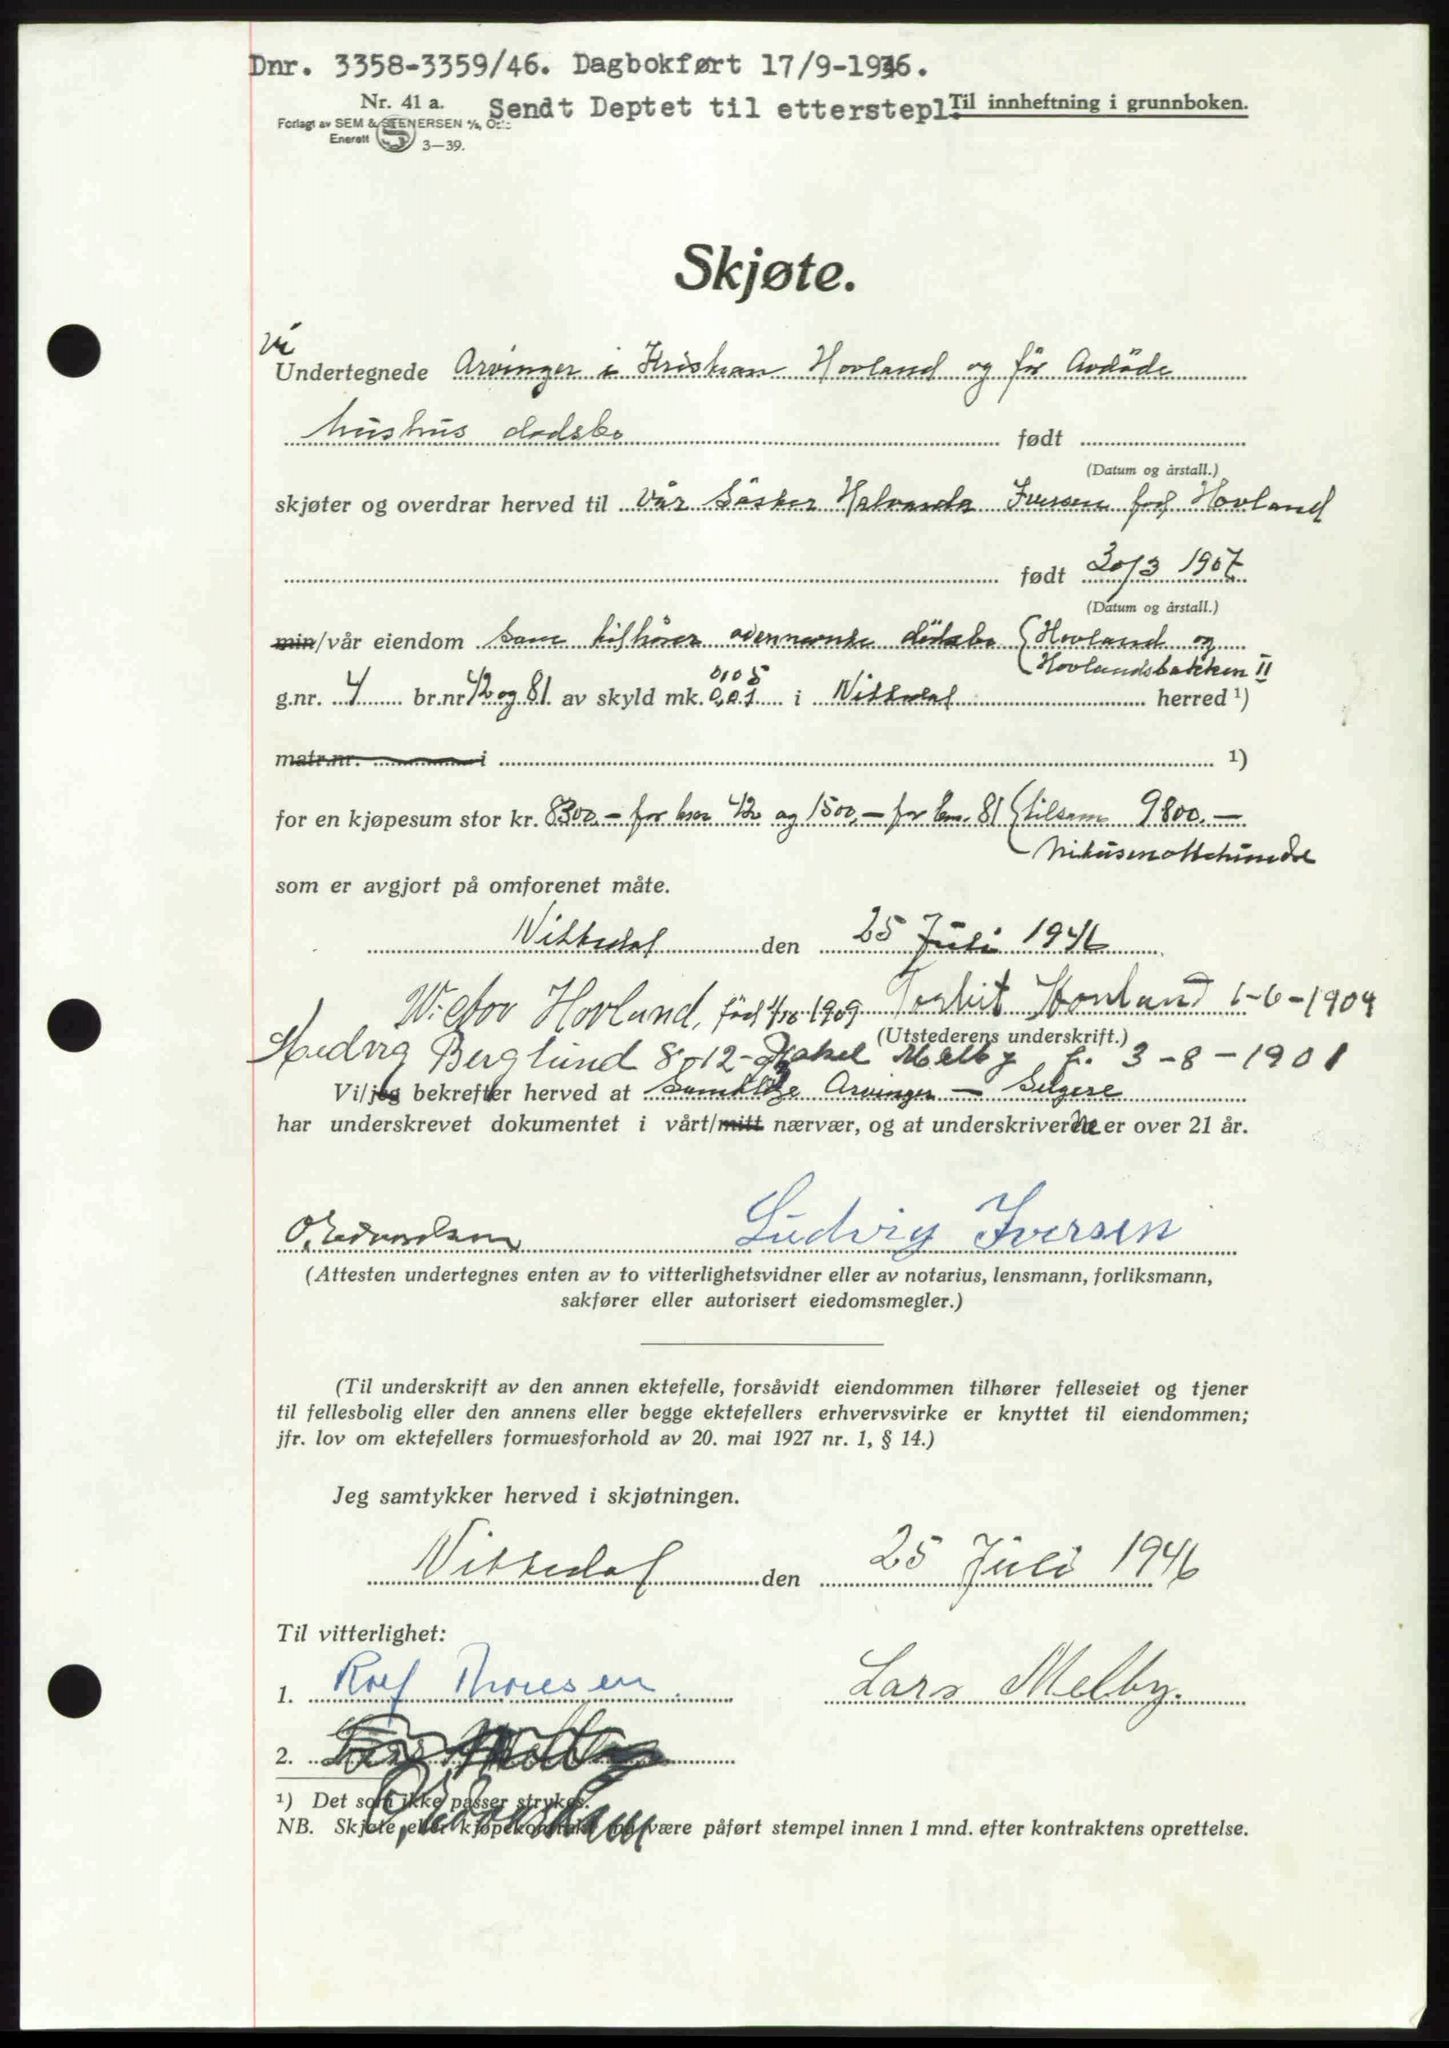 Dnr. 3358-3359/46. Dagbokført 17/9-1946.
Nr. 41 a. Sendt Deptet til etterstepl. Til innheftning i grunnboken.
Forlagt av SEM & STENERSEN A/S, Oslo
Enerett 3—39.
Skjøte.
Vi
Undertegnede Arvinger i Kristian Hovland og før Avdøde
hustrus dødsbo født
(Datum og årstall.)
skjøter og overdrar herved til vår Søster Halvarda Iversen fød Hovland
født 30/3 1907
(Datum og årstall.)
min/vår eiendom som tilhører ovennevnte dødsbo (Hovland og
Hovlandsbakken II
0,05
g.nr. 4 br.nr 42 og 81 av skyld mk. 0,01 i Nittedal herred ¹)
matr.nr. i ¹)
for en kjøpesum stor kr. 8300,- for bnr 42 og 1500,- for bnr. 81 (tilsam 9800.—
Nitusenottehundre
som er avgjort på omforenet måte.
Nittedal den 25 Juli 1946
Victor Hovland, født 1909 Torbit Hovland 1-6-1904
(Utstederens underskrift.)
Hedvig Berglund 8-12- Melby f. 3-8-1901
Vi/jeg bekrefter herved at Samtlige Arvinger — Selgere
har underskrevet dokumentet i vårt/mitt nærvær, og at underskriverne er over 21 år.
O. Edvardsen Ludvig Iversen
(Attesten undertegnes enten av to vitterlighetsvidner eller av notarius, lensmann, forliksmann,
sakfører eller autorisert eiedomsmegler.)
(Til underskrift av den annen ektefelle, forsåvidt eiendommen tilhører felleseiet og tjener
til fellesbolig eller den annens eller begge ektefellers erhvervsvirke er knyttet til eiendommen;
jfr. lov om ektefellers formuesforhold av 20. mai 1927 nr. 1, § 14.)
Jeg samtykker herved i skjøtningen.
Nittedal den 25 Juli 1946
Til vitterlighet:
1. Rolf Thoresen. Lars Melby.
2.
¹) Det som ikke passer strykes.
NB. Skjøte, eller kjøpekontrakt må være påført stempel innen 1 mnd. efter kontraktens oprettelse.